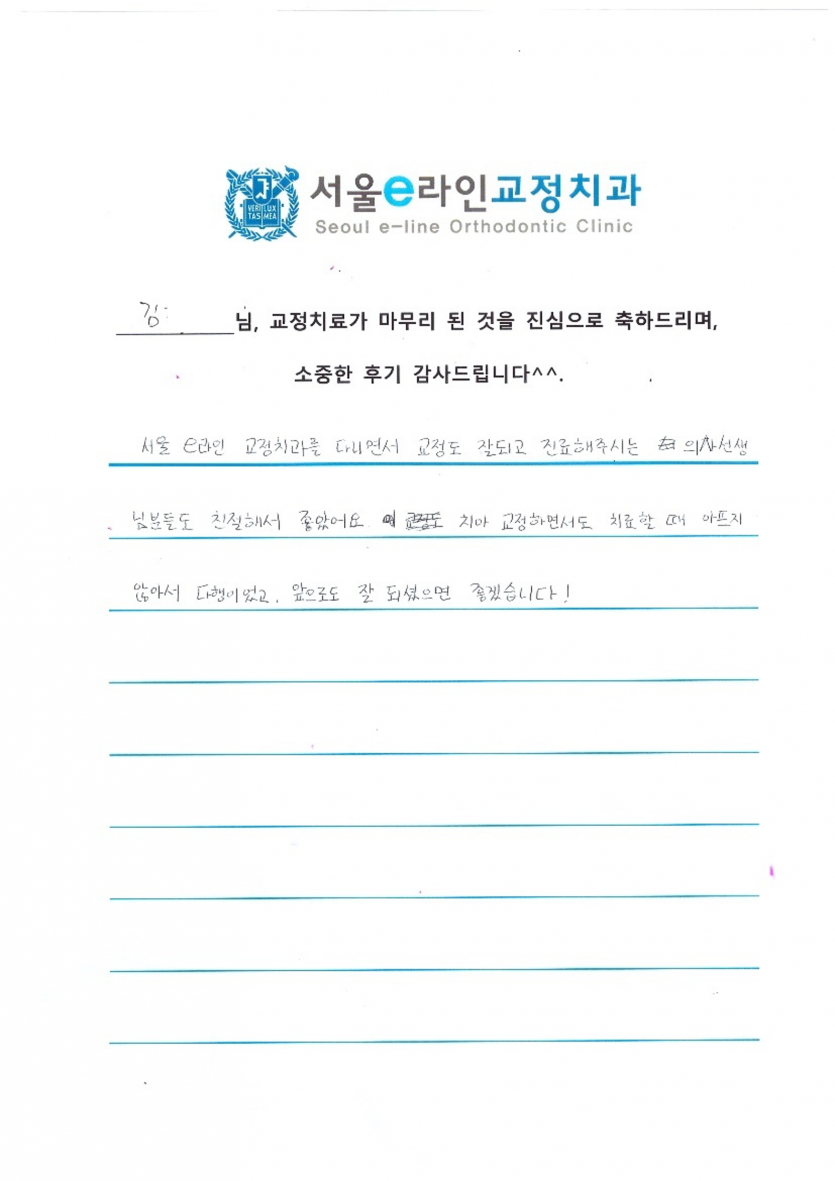 VERI LUX
TAS MEA
서울e라인교정치과
Seoul e-line Orthodontic Clinic
김 님, 교정치료가 마무리 된 것을 진심으로 축하드리며,
소중한 후기 감사드립니다^^.
서울 e라인 교정치과를 다니면서 교정도 잘되고 진료해주시는 의사선생
님분들도 친절해서 좋았어요 치아 교정하면서도 치료할 때 아프지
않아서 다행이었고, 앞으로도 잘 되셨으면 좋겠습니다!